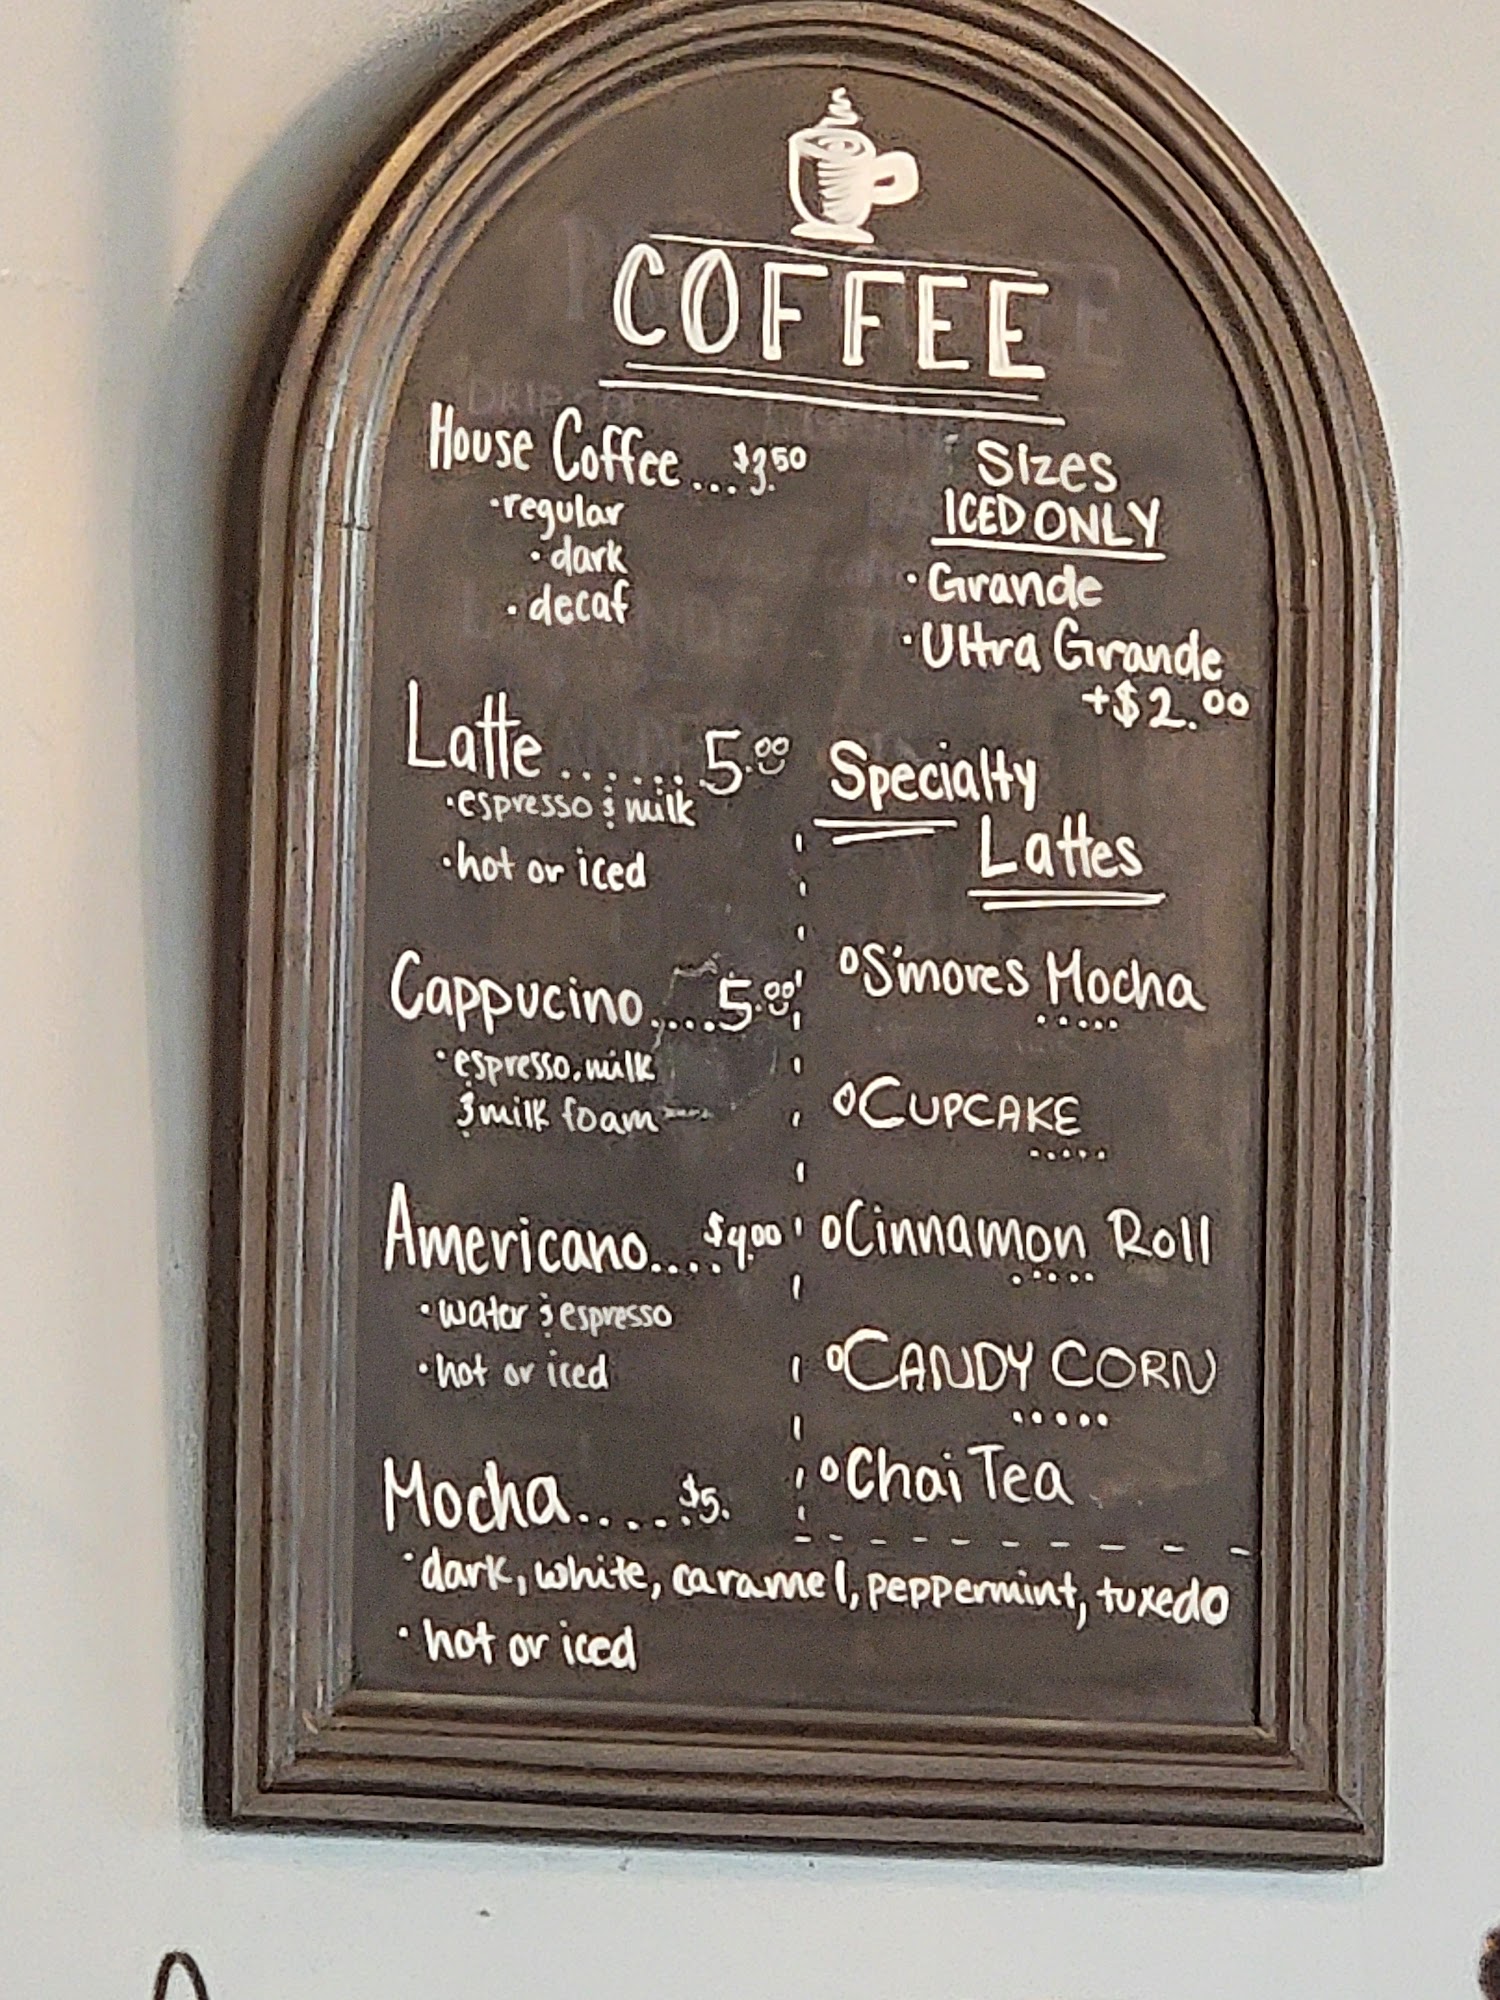 COFFEE
House Coffee...$3.50
·regular
·dark
·decaf
Latte......5.00
·espresso & milk
·hot or iced
Cappucino....5.00
·espresso, milk
& milk foam
Americano....$4.00
·water & espresso
·hot or iced
Mocha.....$5.
·dark, white, caramel, peppermint, tuxedo
·hot or iced
Sizes
ICED ONLY
·Grande
·Ultra Grande
+$2.00
Specialty
Lattes
S'mores Mocha
CUPCAKE
Cinnamon Roll
CANDY CORN
Chai Tea